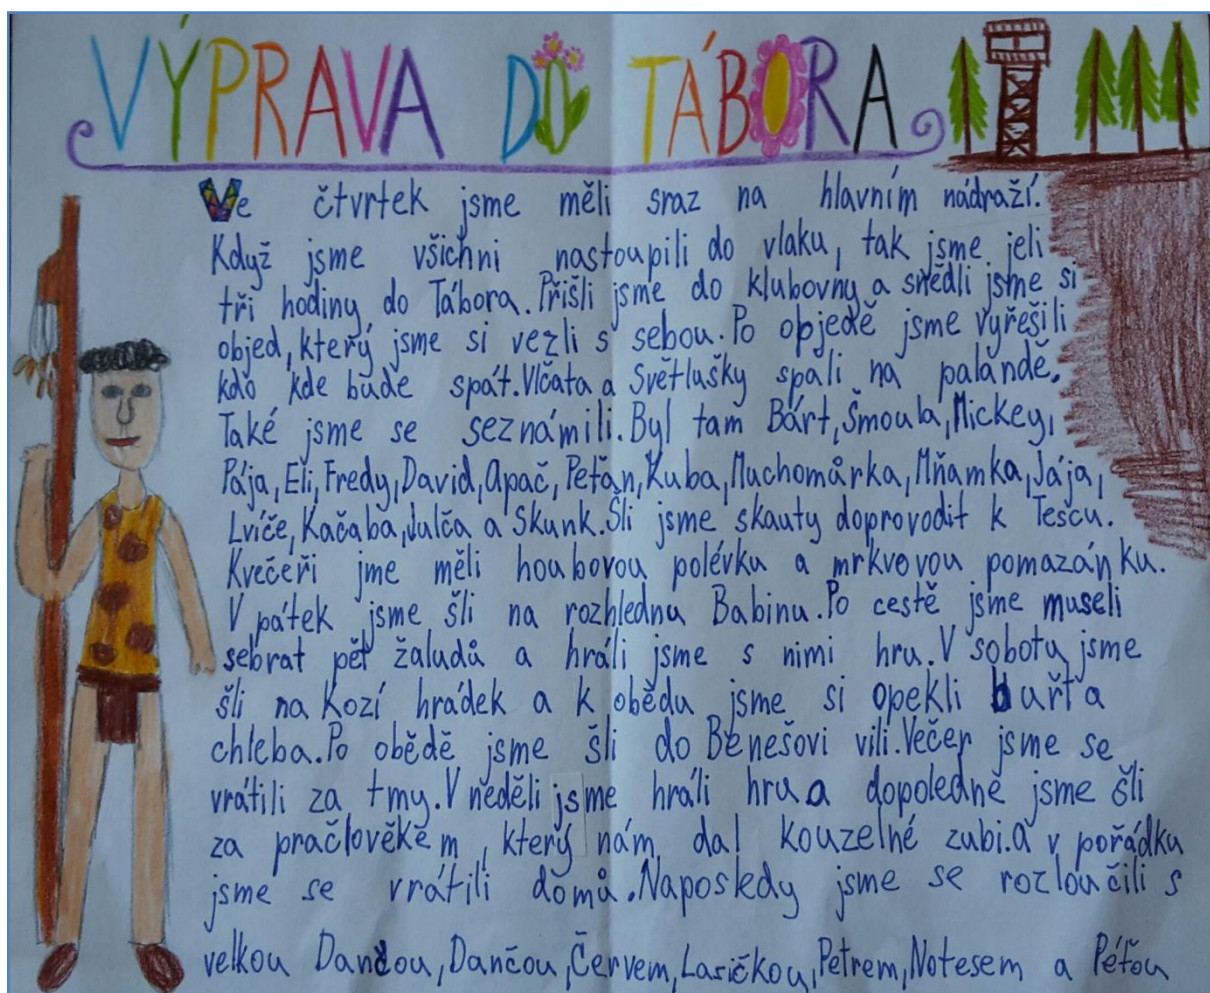 VÝPRAVA DO TÁBORA
Ve čtvrtek jsme měli sraz na hlavním nádraží.
Když jsme všichni nastoupili do vlaku, tak jsme jeli
tři hodiny do Tábora. Přišli jsme do klubovny a snědli jsme si
objed, který jsme si vezli s sebou. Po objedě jsme vyřešili
kdo kde bude spát. Vlčata a Světlušky spali na palandě.
Také jsme se seznámili. Byl tam Bárt, Šmoula, Mickey,
Pája, Eli, Fredy, David, Apač, Peťan, Kuba, Muchomůrka, Mňamka, Jája,
Lvíče, Kačaba, Julča a Skunk. Šli jsme skauty doprovodit k Tescu.
Kvečeři jme měli houbovou polévku a mrkvovou pomazánku.
V pátek jsme šli na rozhlednu Babinu. Po cestě jsme museli
sebrat pět žaludů a hráli jsme s nimi hru. V sobotu jsme
šli na Kozí hrádek a k obědu jsme si opekli buřta
chleba. Po obědě jsme šli do Benešovi vili. Večer jsme se
vrátili za tmy. V neděli jsme hráli hru a dopoledně jsme šli
za pračlověkem, který nám dal kouzelné zubi. A v pořádku
jsme se vrátili domů. Naposledy jsme se rozloučili s
velkou Dančou, Dančou, Červem, Lasičkou, Petrem, Notesem a Péťou